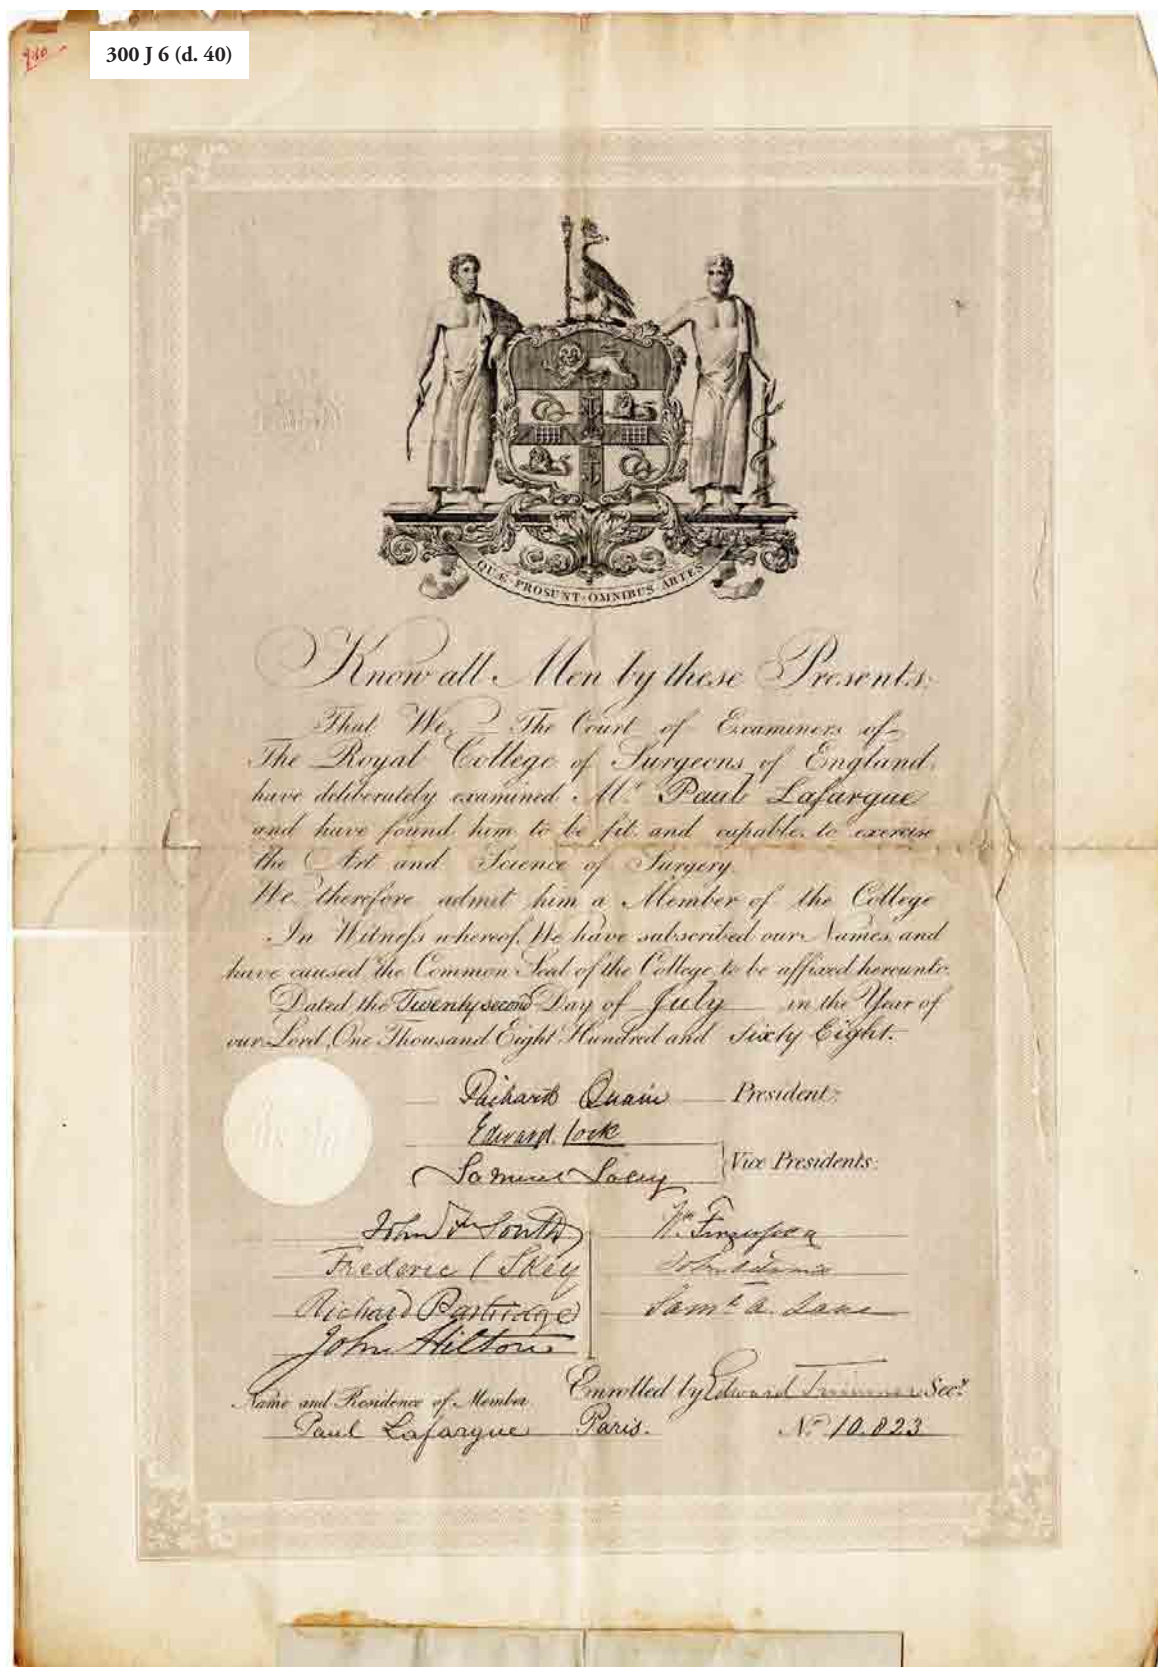 300 J 6 (d. 40)
QUÆ·PROSUNT·OMNIBUS·ARTES
Know all Men by these Presents:
That We, The Court of Examiners of
The Royal College of Surgeons of England,
have deliberately examined Mr. Paul Lafargue
and have found him to be fit and capable to exercise
the Art and Science of Surgery.
We therefore admit him a Member of the College
In Witness whereof, We have subscribed our Names, and
have caused the Common Seal of the College to be affixed hereunto.
Dated the Twenty second Day of July in the Year of
our Lord, One Thousand Eight Hundred and Sixty Eight.
Richard Quain President.
Edward Cock
Samuel Solly Vice Presidents.
John F. South
Frederic C Skey
Richard Partridge Saml. A. Lane
John Hilton
Enrolled by Edward Trimmer Secy.
Name and Residence of Member
Paul Lafargue Paris. No. 10.823